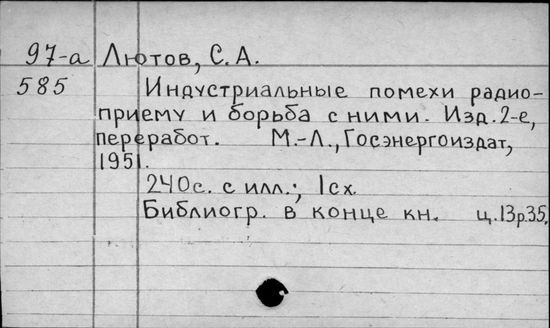 97-а Лютов, С. А.
585 Индустриальные помехи радио-
приему и борьба с ними. Изд. 2-е,
переработ. М.-Л., Госэнергоиздат,
1951.
240с. с илл.; 1 сх.
Библиогр. в конце кн. ц. 13р.35.